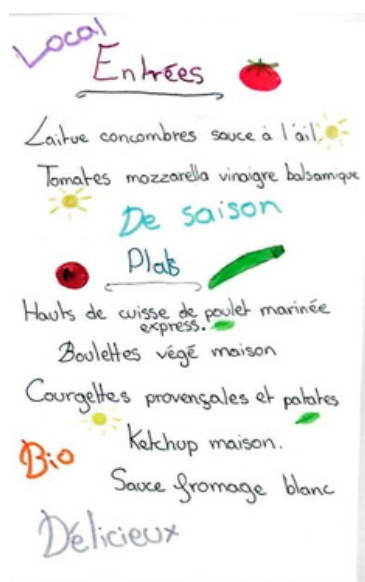 Local
Entrées
Laitue concombres sauce à l'ail
Tomates mozzarella vinaigre balsamique
De saison
Plats
Hauts de cuisse de poulet marinée
express.
Boulettes végé maison
Courgettes provençales et patates
Ketchup maison.
Bio
Sauce fromage blanc
Délicieux